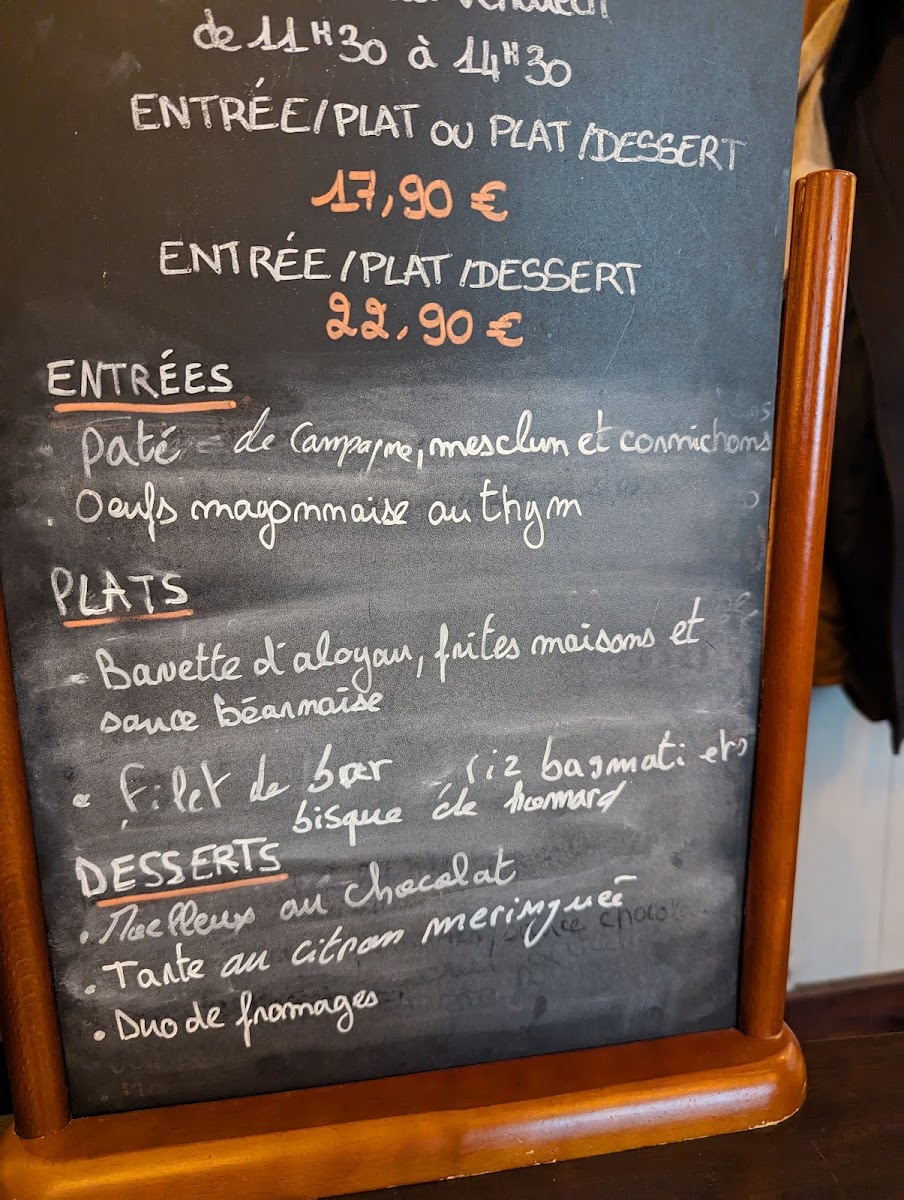 vendredi
de 11H30 à 14H30
ENTRÉE/PLAT OU PLAT/DESSERT
17,90 €
ENTRÉE/PLAT/DESSERT
22,90 €
ENTRÉES
Paté de Campagne, mesclun et cornichons
Oeufs mayonnaise au thym
PLATS
- Bavette d'aloyau, frites maisons et
sauce béarnaise
• Filet de bar riz basmati et
bisque de homard
DESSERTS
• Moelleux au chocolat
• Tarte au citron meringuée
• Duo de fromages